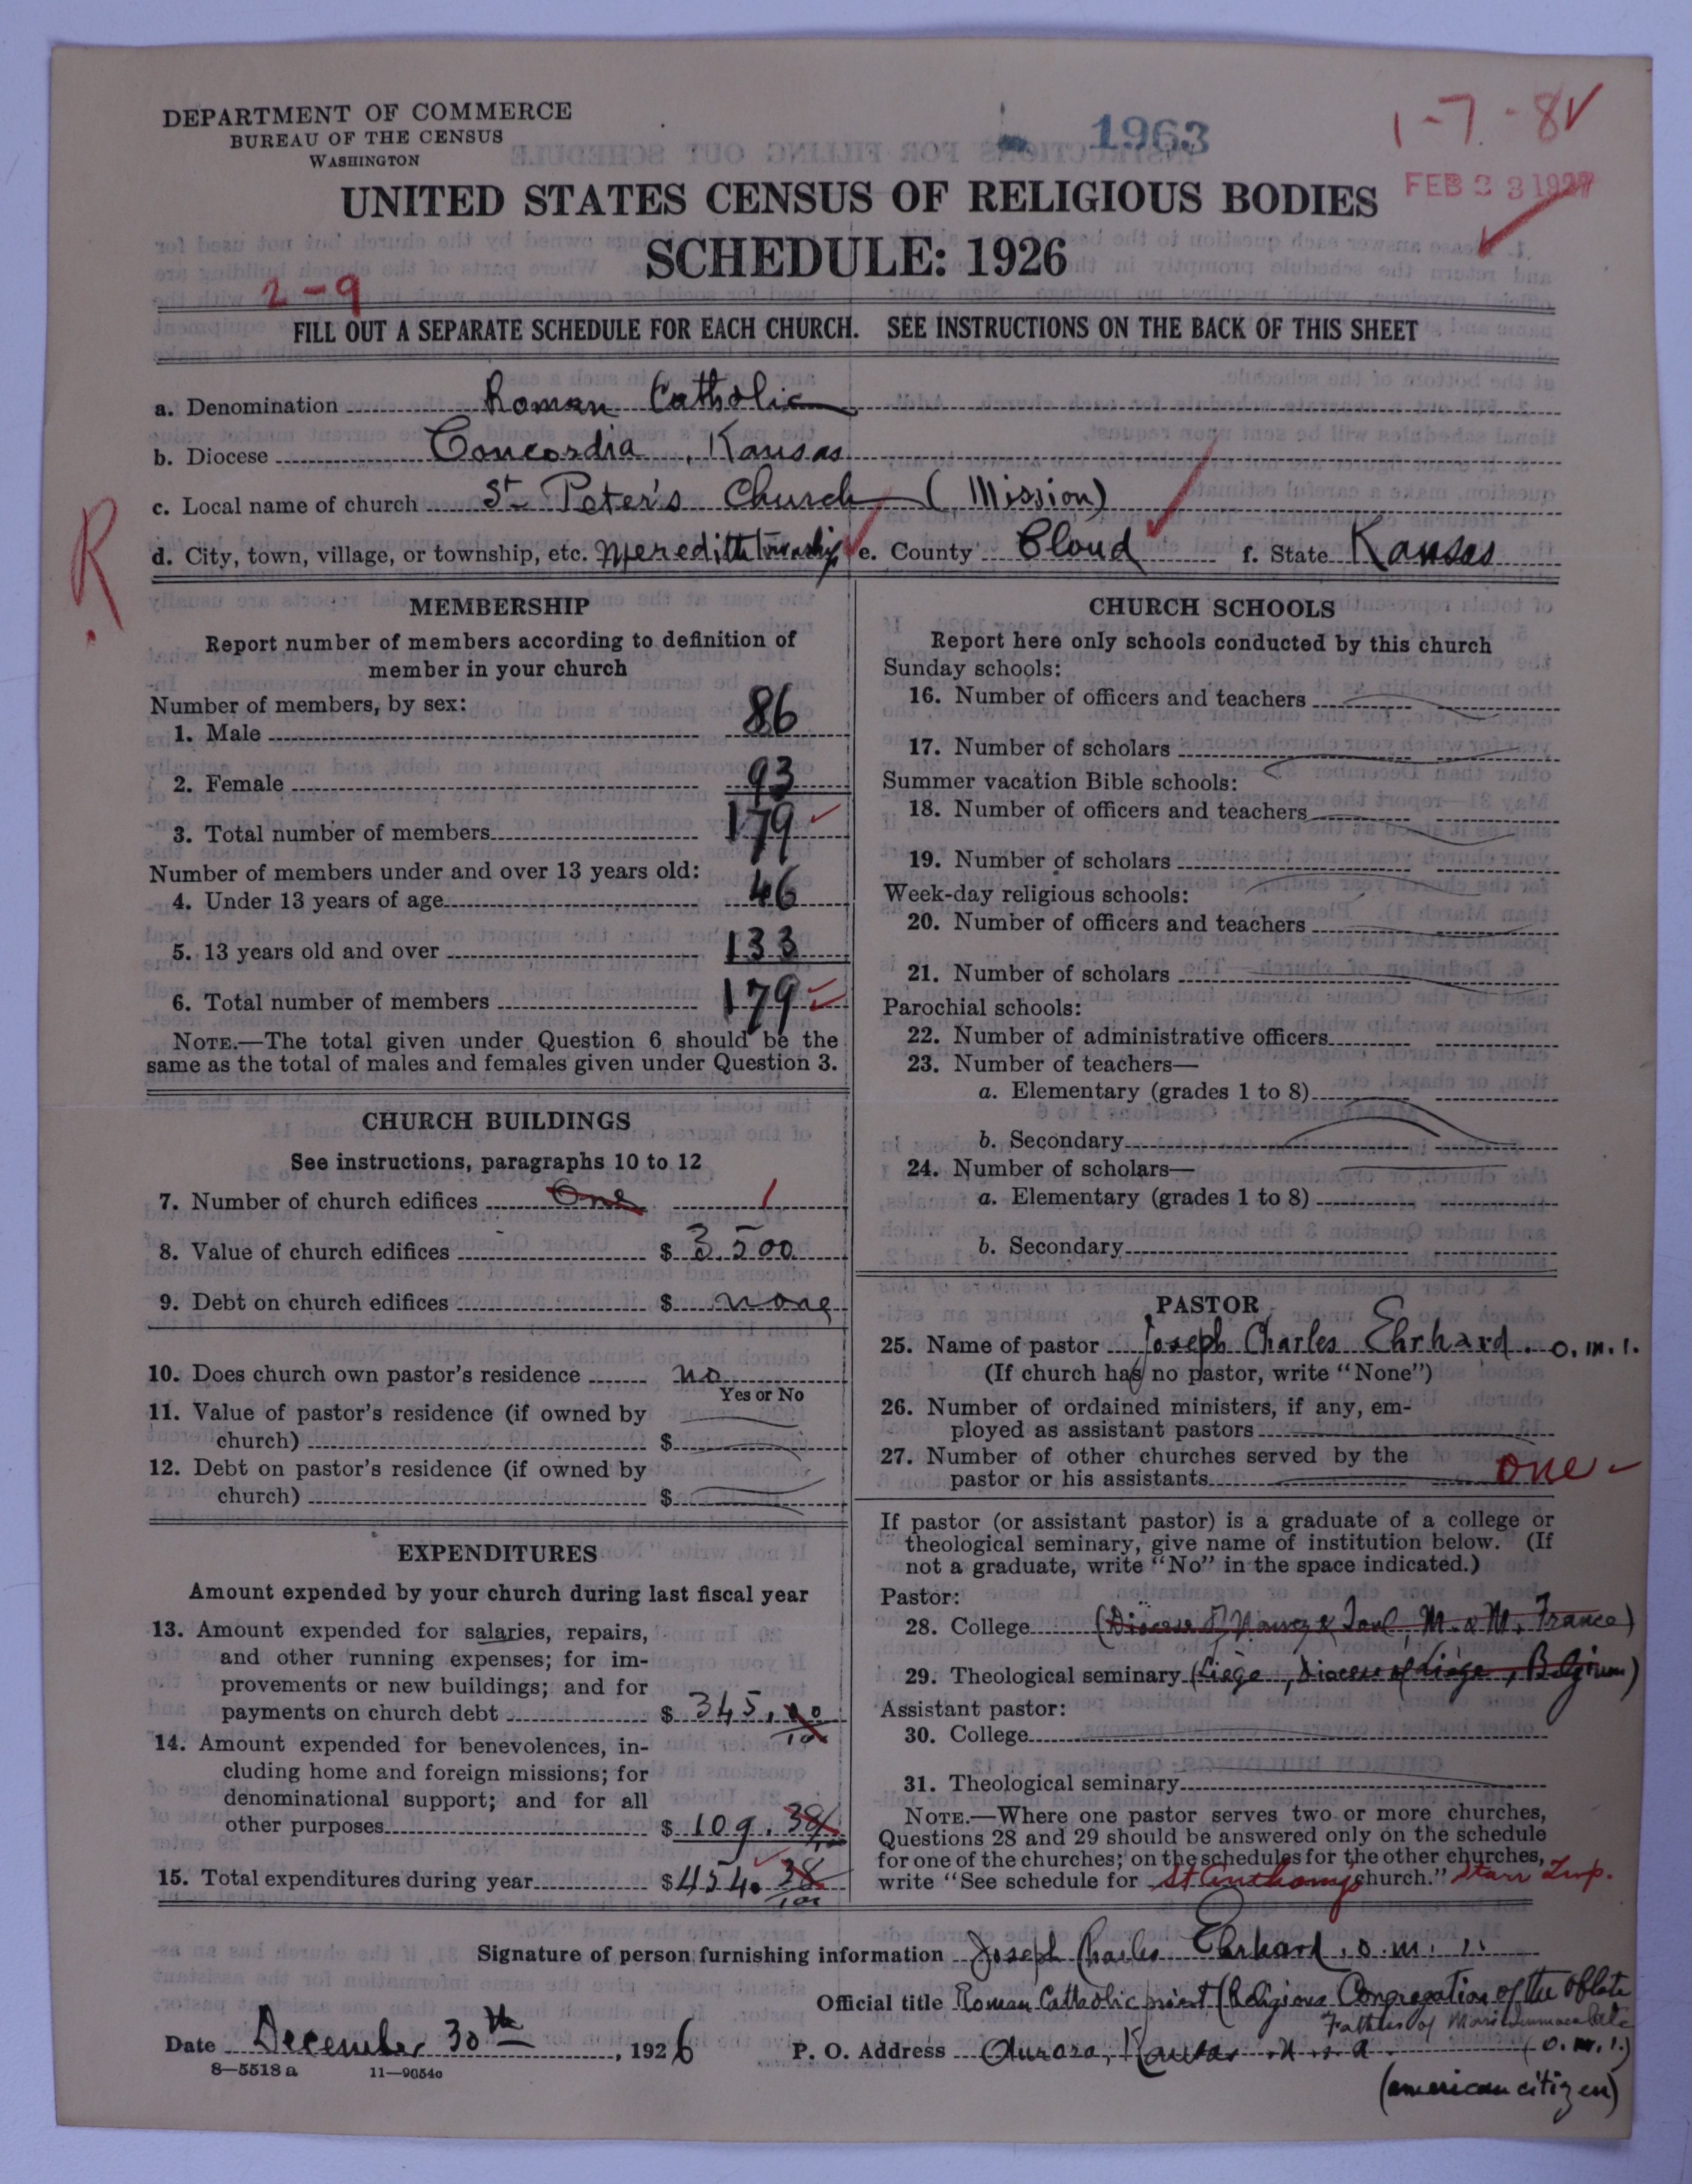 DEPARTMENT OF COMMERCE
BUREAU OF THE CENSUS
WASHINGTON
1963
1-7-8
FEB 23 1927
UNITED STATES CENSUS OF RELIGIOUS BODIES
SCHEDULE: 1926
2-9
FILL OUT A SEPARATE SCHEDULE FOR EACH CHURCH. SEE INSTRUCTIONS ON THE BACK OF THIS SHEET
a. Denomination Roman Catholic
b. Diocese Concordia, Kansas
c. Local name of church St Peter's Church (Mission)
d. City, town, village, or township, etc. Meredith Township e. County Cloud f. State Kansas
R.
MEMBERSHIP
Report number of members according to definition of
member in your church
Number of members, by sex:
1. Male 86
2. Female 93
3. Total number of members 179
Number of members under and over 13 years old:
4. Under 13 years of age 46
5. 13 years old and over 133
6. Total number of members 179
NOTE.—The total given under Question 6 should be the
same as the total of males and females given under Question 3.
CHURCH BUILDINGS
See instructions, paragraphs 10 to 12
7. Number of church edifices One 1
8. Value of church edifices $ 3500
9. Debt on church edifices $ none
10. Does church own pastor's residence no
Yes or No
11. Value of pastor's residence (if owned by
church) $
12. Debt on pastor's residence (if owned by
church) $
EXPENDITURES
Amount expended by your church during last fiscal year
13. Amount expended for salaries, repairs,
and other running expenses; for im-
provements or new buildings; and for
payments on church debt $ 345.00/100
14. Amount expended for benevolences, in-
cluding home and foreign missions; for
denominational support; and for all
other purposes $ 109.38
15. Total expenditures during year $ 454.38/100
CHURCH SCHOOLS
Report here only schools conducted by this church
Sunday schools:
16. Number of officers and teachers
17. Number of scholars
Summer vacation Bible schools:
18. Number of officers and teachers
19. Number of scholars
Week-day religious schools:
20. Number of officers and teachers
21. Number of scholars
Parochial schools:
22. Number of administrative officers
23. Number of teachers—
a. Elementary (grades 1 to 8)
b. Secondary
24. Number of scholars—
a. Elementary (grades 1 to 8)
b. Secondary
PASTOR
25. Name of pastor Joseph Charles Ehrhard. O.M.I.
(If church has no pastor, write "None")
26. Number of ordained ministers, if any, em-
ployed as assistant pastors
27. Number of other churches served by the
pastor or his assistants one
If pastor (or assistant pastor) is a graduate of a college or
theological seminary, give name of institution below. (If
not a graduate, write "No" in the space indicated.)
Pastor:
28. College (Diocese of Nancy & Toul, M. & M. France)
29. Theological seminary (Liège, Diocese of Liège, Belgium)
Assistant pastor:
30. College
31. Theological seminary
NOTE.—Where one pastor serves two or more churches,
Questions 28 and 29 should be answered only on the schedule
for one of the churches; on the schedules for the other churches,
write "See schedule for St Anthony's church." Starr Twp.
Signature of person furnishing information Joseph Charles Ehrhard. O.M.I.
Official title Roman Catholic priest (Religious Congregation of the Oblate
Fathers of Mary Immaculate
(O.M.I.)
Date December 30th, 1926 P. O. Address Aurora, Kansas U.S.A.
8—5518 a 11—9054a
(american citizen)